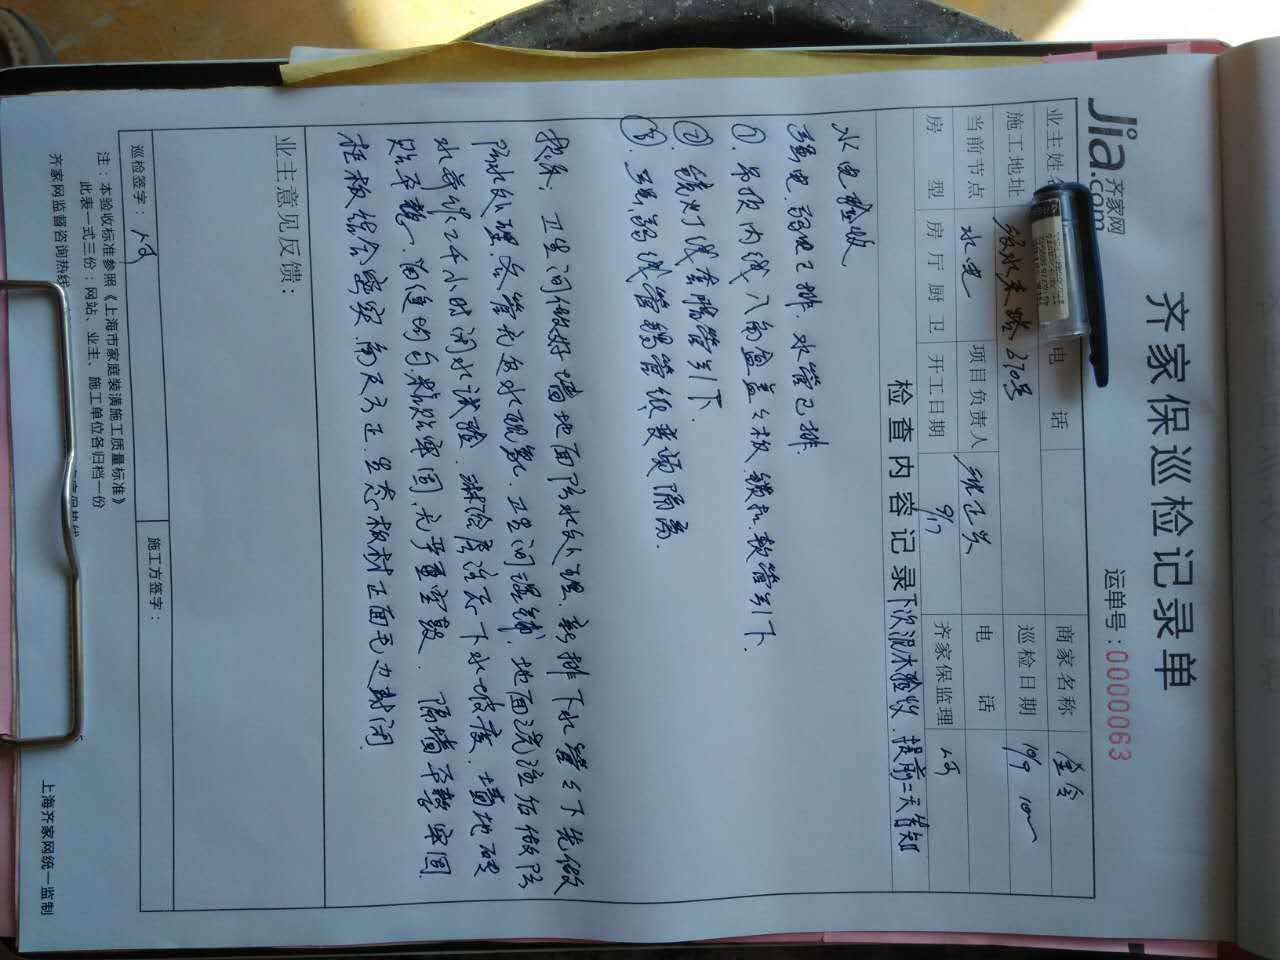 Jia.com 齐家网
齐家保巡检记录单
运单号:0000063
业主姓 电话 商家名称
施工地址 路370号 巡检日期 10/9
当前节点 水电 项目负责人 电话
房型 房厅厨卫 开工日期 9/17 齐家保监理
检查内容记录 下次泥木验收.提前二天告知
水电验收
强电.弱电已排 水管已排.
①.吊顶内线八角盒盖盖板.锁扣.软管引下.
②.镜灯线套腊管引下.
③.强弱线管锡管纸要须隔离.
卫生间做好墙地面防水处理.新排下水管之下先做
防水处理各管无渗水现象.卫生间湿铺,地面浇注后做防
水养护.24小时闭水试验.淋浴房注意下水坡度.墙地砖
贴平整.角缝均匀.粘贴牢固.无严重空鼓. 隔墙平整牢固
柜板结合密实.角尺方正.生态板材正面毛边封闭.
业主意见反馈:
巡检签字: 施工方签字:
注:本验收标准参照《上海市家庭装潢施工质量标准》
此表一式三份:网站、业主、施工单位各归档一份
齐家网监督咨询热线
上海齐家网统一监制